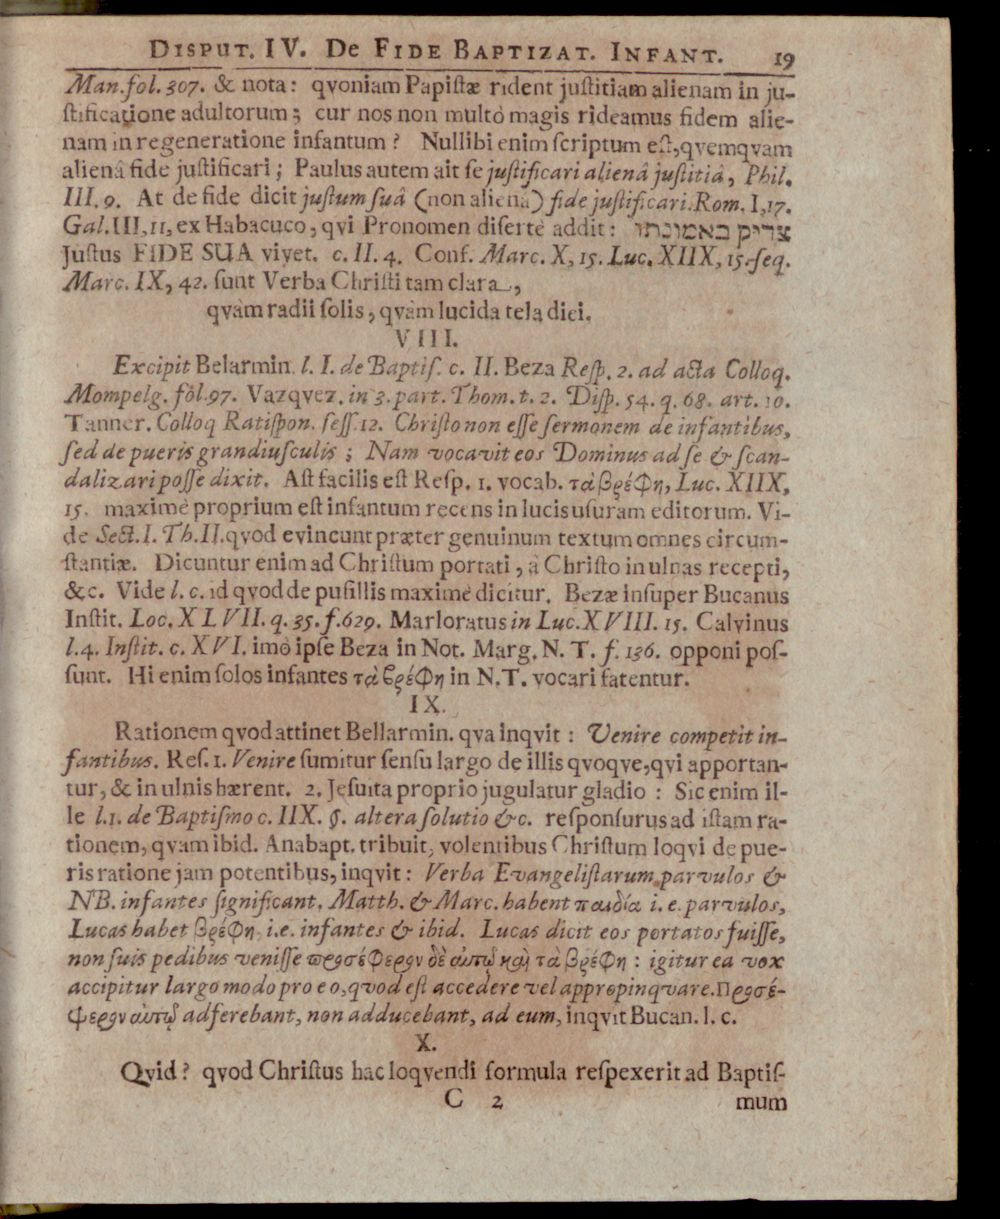 DISPUT. IV. DE FIDE BAPTIZAT. INFANT. 19
Man. fol. 307. & nota: qvoniam Papistæ rident justitiam alienam in ju-
stificatione adultorum; cur nos non multò magis rideamus fidem alie-
nam in regeneratione infantum? Nullibi enim scriptum est, qvemqvam
alienâ fide justificari; Paulus autem ait se justificari alienâ justitiâ, Phil.
III. 9. At de fide dicit justum suâ (non alienâ) fide justificari. Rom. I, 17.
Gal. III, 11, ex Habacuco, qvi Pronomen disertè addit: צדיק באמונתו
Justus FIDE SUA vivet. c. II. 4. Conf. Marc. X, 15. Luc. XIIX, 15. seq.
Marc. IX, 42. sunt Verba Christi tam clara,
qvàm radii solis, qvàm lucida tela diei.
VIII.
Excipit Belarmin. l. I. de Baptis. c. II. Beza Resp. 2. ad acta Colloq.
Mompelg. fol. 97. Vazqvez. in 3. part. Thom. t. 2. Disp. 54. q. 68. art. 10.
Tanner. Colloq Ratispon. sess. 12. Christo non esse sermonem de infantibus,
sed de pueris grandiusculis; Nam vocavit eos Dominus ad se & scan-
dalizari posse dixit. Ast facilis est Resp. 1. vocab. τὰ βρέφη, Luc. XIIX,
15. maximè proprium est infantum recens in lucis usuram editorum. Vi-
de Sect. I. Th. II. qvod evincunt præter genuinum textum omnes circum-
stantiæ. Dicuntur enim ad Christum portati, à Christo in ulnas recepti,
&c. Vide l. c. id qvod de pusillis maximè dicitur. Bezæ insuper Bucanus
Instit. Loc. XLVII. q. 35. f. 629. Marloratus in Luc. XVIII. 15. Calvinus
l. 4. Instit. c. XVI. imò ipse Beza in Not. Marg. N. T. f. 136. opponi pos-
sunt. Hi enim solos infantes τὰ βρέφη in N. T. vocari fatentur.
IX.
Rationem qvod attinet Bellarmin. qva inqvit: Venire competit in-
fantibus. Res. 1. Venire sumitur sensu largo de illis qvoqve, qvi apportan-
tur, & in ulnis hærent. 2. Jesuita proprio jugulatur gladio: Sic enim il-
le l. 1. de Baptismo c. IIX. §. altera solutio &c. responsurus ad istam ra-
tionem, qvam ibid. Anabapt. tribuit, volentibus Christum loqvi de pue-
ris ratione jam potentibus, inqvit: Verba Evangelistarum parvulos &
NB. infantes significant. Matth. & Marc. habent παιδία i. e. parvulos,
Lucas habet βρέφη i. e. infantes & ibid. Lucas dicit eos portatos fuisse,
non suis pedibus venisse προσέφερον δὲ αὐτῷ καὶ τὰ βρέφη: igitur ea vox
accipitur largo modo pro eo, qvod est accedere vel appropinqvare. Προσέ-
φερον αὐτῷ adferebant, non adducebant, ad eum, inqvit Bucan. l. c.
X.
Qvid? qvod Christus hac loqvendi formula respexerit ad Baptis-
C 2 mum